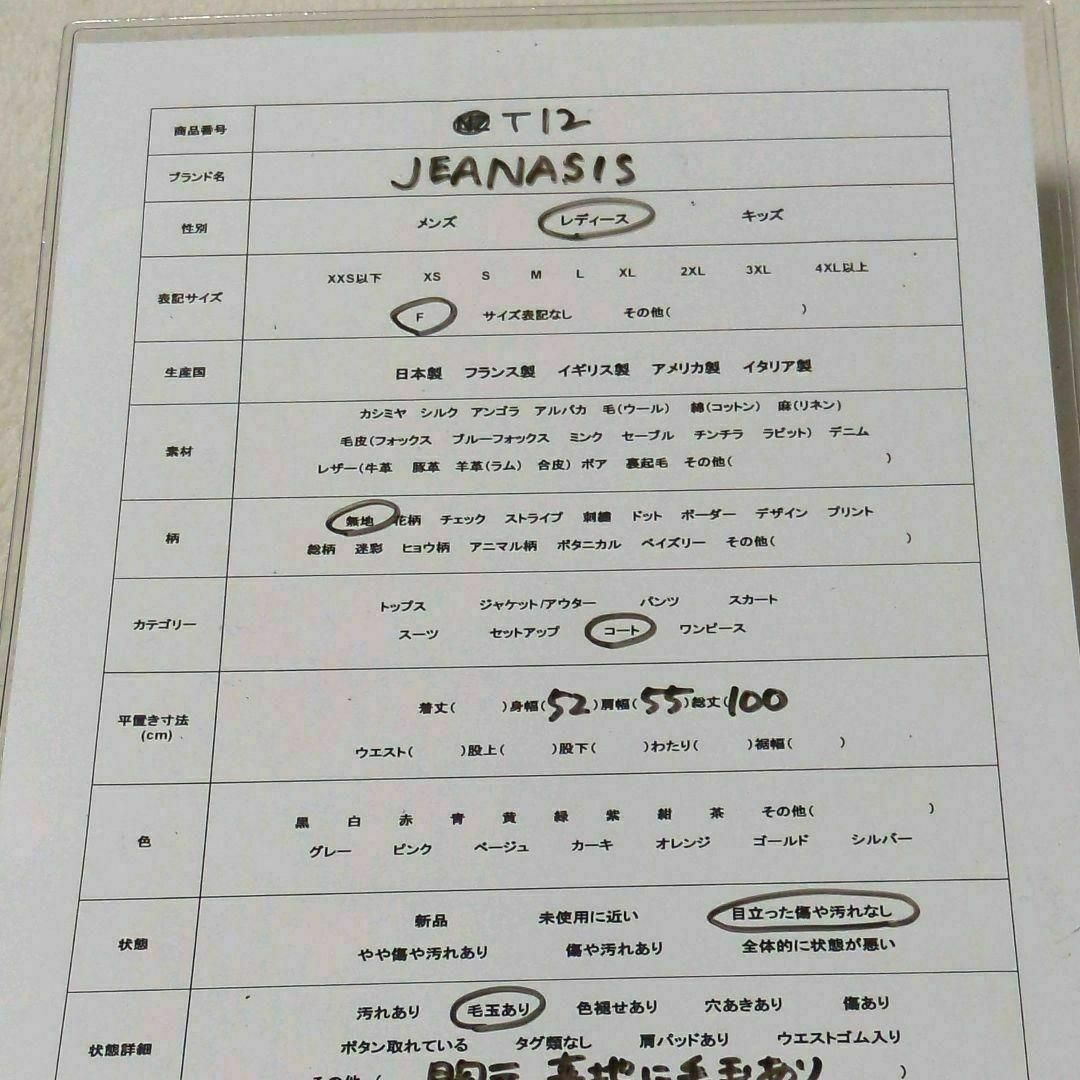 商品番号 T12
ブランド名 JEANASIS
性別 メンズ レディース キッズ
表記サイズ XXS以下 XS S M L XL 2XL 3XL 4XL以上
F サイズ表記なし その他( )
生産国 日本製 フランス製 イギリス製 アメリカ製 イタリア製
素材 カシミヤ シルク アンゴラ アルパカ 毛(ウール) 綿(コットン) 麻(リネン)
毛皮(フォックス ブルーフォックス ミンク セーブル チンチラ ラビット) デニム
レザー(牛革 豚革 羊革(ラム) 合皮) ボア 裏起毛 その他( )
柄 無地 花柄 チェック ストライプ 刺繍 ドット ボーダー デザイン プリント
総柄 迷彩 ヒョウ柄 アニマル柄 ボタニカル ペイズリー その他( )
カテゴリー トップス ジャケット/アウター パンツ スカート
スーツ セットアップ コート ワンピース
平置き寸法 着丈( )身幅(52)肩幅(55)総丈(100
(cm) ウエスト( )股上( )股下( )わたり( )裾幅( )
色 黒 白 赤 青 黄 緑 紫 紺 茶 その他( )
グレー ピンク ベージュ カーキ オレンジ ゴールド シルバー
状態 新品 未使用に近い 目立った傷や汚れなし
やや傷や汚れあり 傷や汚れあり 全体的に状態が悪い
状態詳細 汚れあり 毛玉あり 色褪せあり 穴あきあり 傷あり
ボタン取れている タグ類なし 肩パッドあり ウエストゴム入り
その他( 胸元 裏地に毛玉あり )